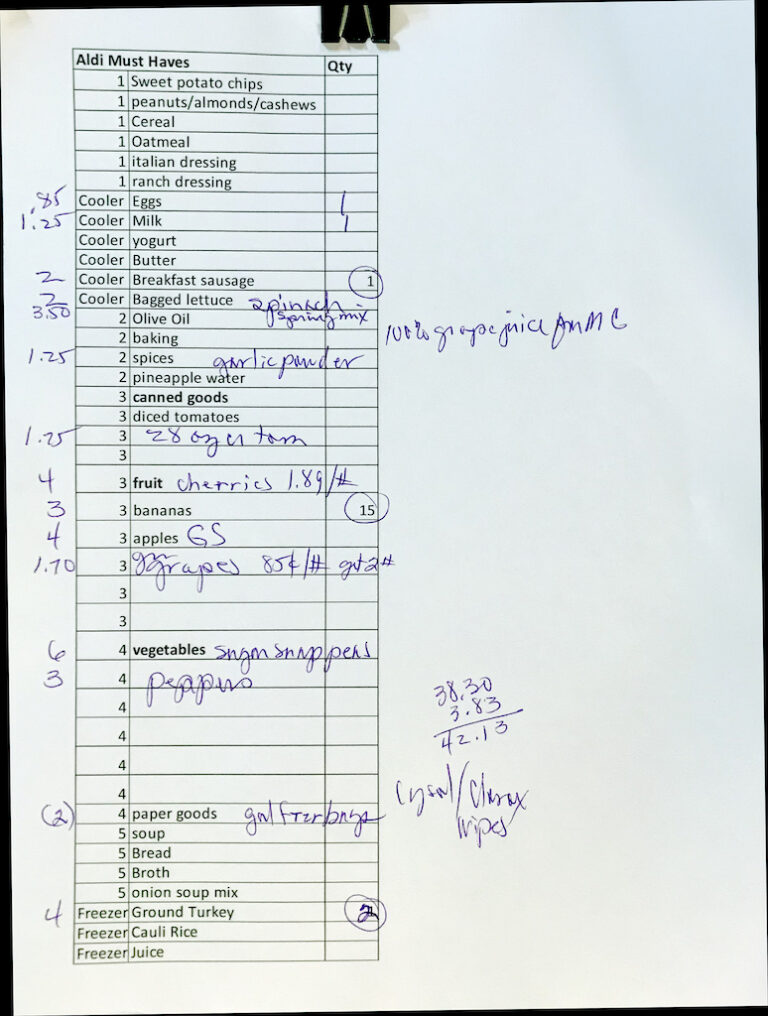 Aldi Must Haves Qty
1 Sweet potato chips
1 peanuts/almonds/cashews
1 Cereal
1 Oatmeal
1 italian dressing
1 ranch dressing
.85 Cooler Eggs 1
1.25 Cooler Milk 1
Cooler yogurt
Cooler Butter
2 Cooler Breakfast sausage 1
2 Cooler Bagged lettuce spinach
3.50 spring mix
2 Olive Oil
100% grape juice
2 baking
1.25 2 spices garlic powder
2 pineapple water
3 canned goods
3 diced tomatoes
1.25 3 28 oz cr tom
3
4 3 fruit cherries 1.89/#
3 3 bananas 15
4 3 apples GS
1.70 3 grapes 85¢/# get 2#
3
3
6 4 vegetables sugar snap peas
3 4
4
38.30
3.83
42.13
4
4
4
Lysol/Clorox
wipes
(2) 4 paper goods gal frzr bags
5 soup
5 Bread
5 Broth
5 onion soup mix
4 Freezer Ground Turkey 2
Freezer Cauli Rice
Freezer Juice